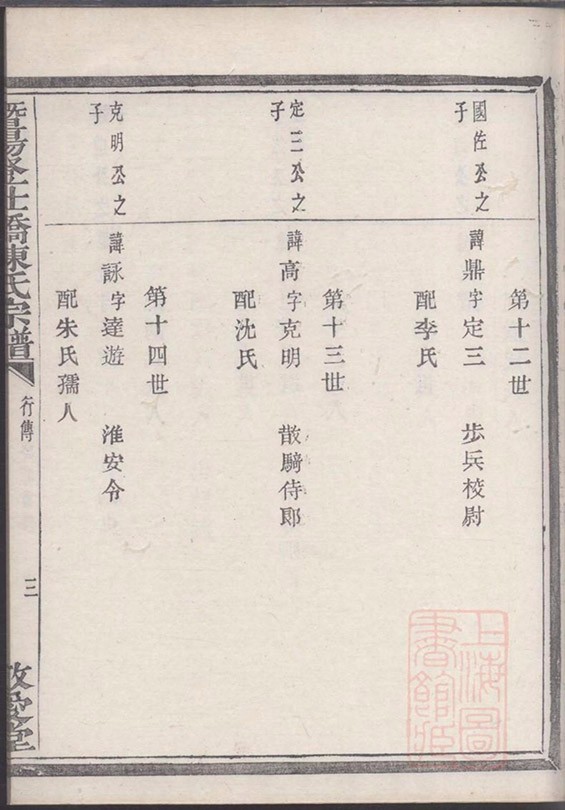 第十二世
國佐公之子
諱鼎字定三 步兵校尉
配李氏
第十三世
定三公之子
諱高字克明 散騎侍郎
配沈氏
第十四世
克明公之子
諱詠字達遊 淮安令
配朱氏孺人
暨陽登仕橋陳氏宗譜
行傳
三
敬愛堂
上海圖書館藏